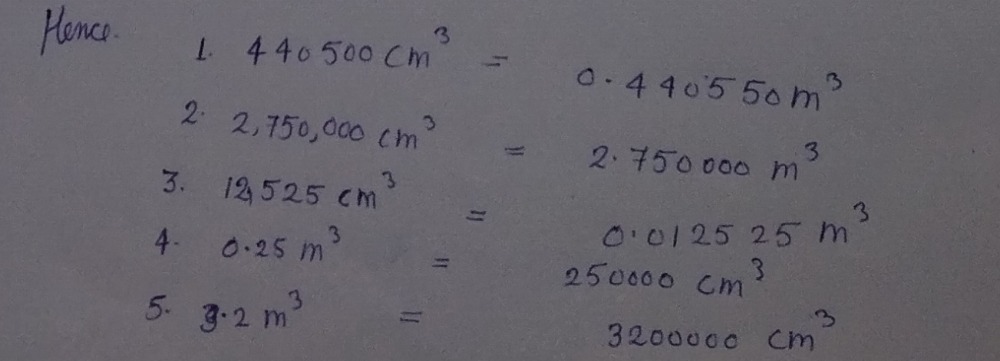 Hence.
1. 440500 cm³ = 0.440550 m³
2. 2,750,000 cm³ = 2.750000 m³
3. 12,525 cm³ = 0.012525 m³
4. 0.25 m³ = 250000 cm³
5. 3.2 m³ = 3200000 cm³